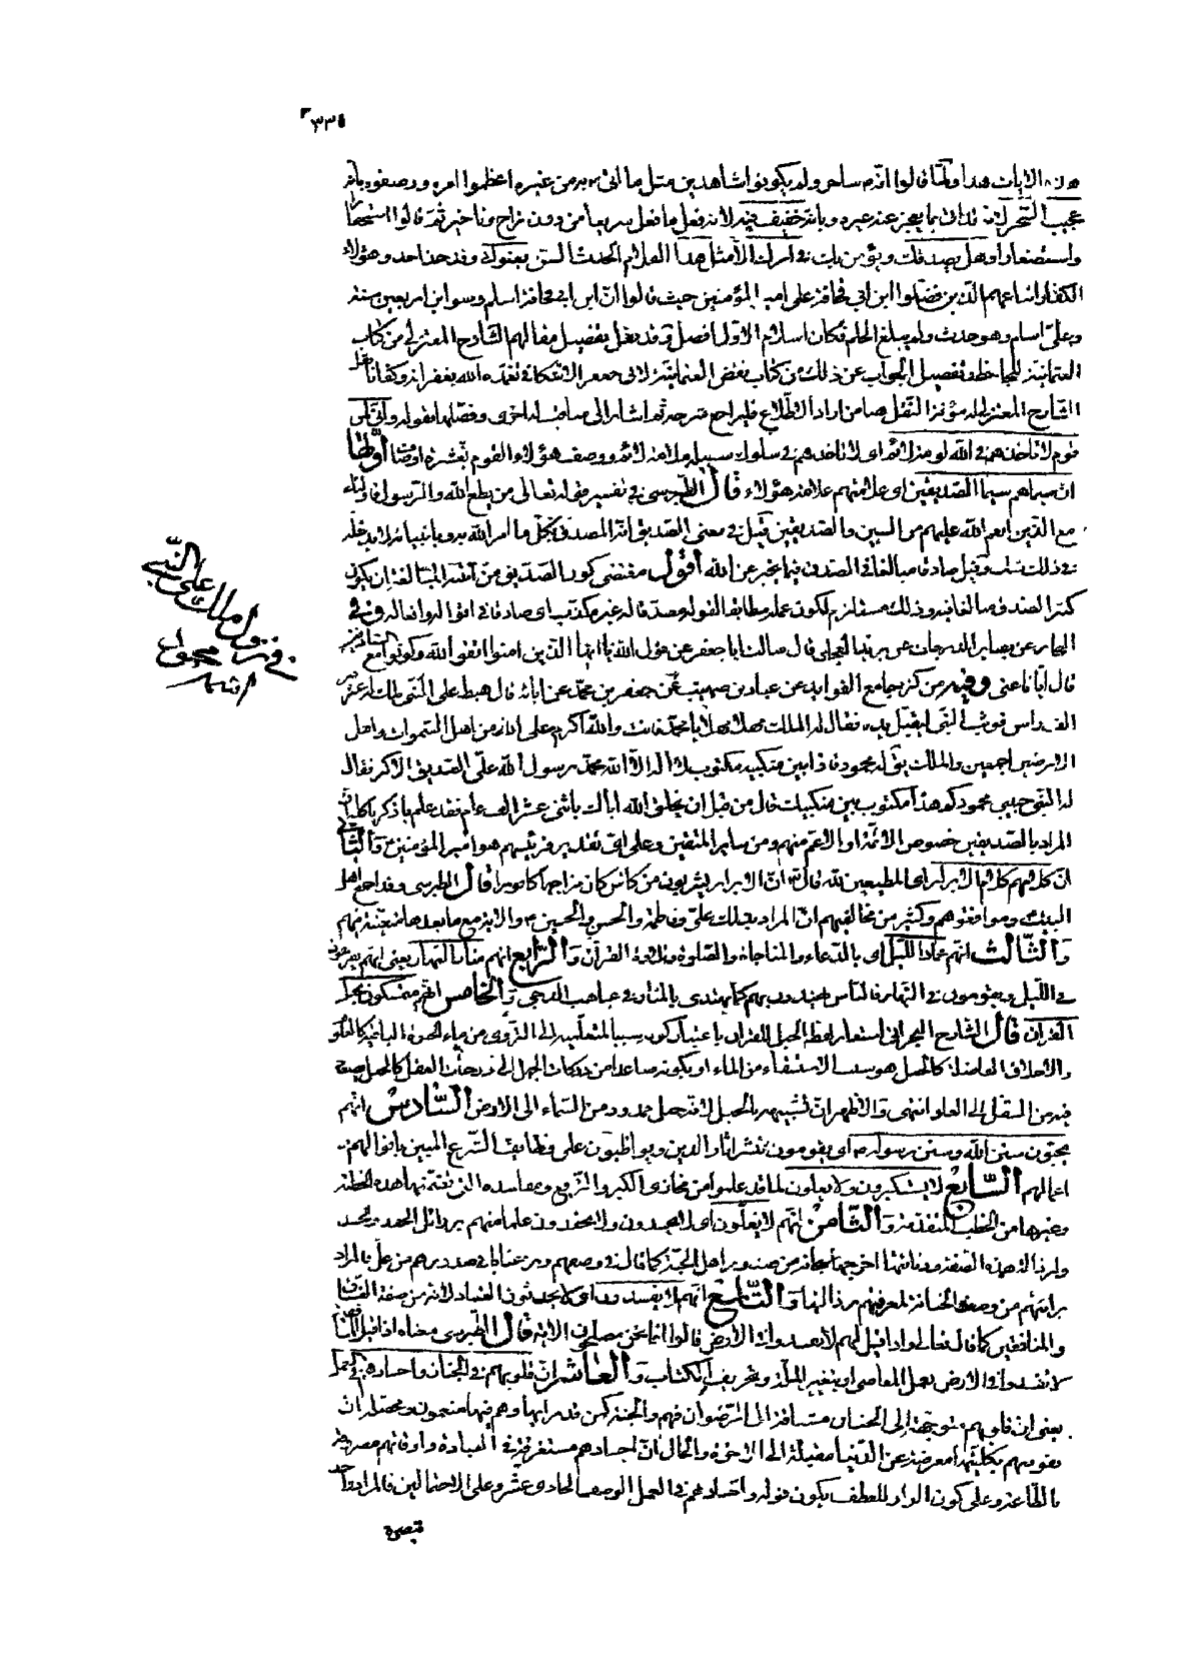 ٣٣٤
هذه الآيات هذا ولمّا قالوا انّه ساحر ولم يكونوا شاهدين مثل ما اتى به من غيره اعظموا امره ووصفوه بانّه
عجيب السّحر لانه قد اتى بما يعجز عنه غيره وبانّه خفيف فيه لانه فعل ما فعل سريعا من دون تراخ وتاخير ثمّ قالوا استحقارا
واستصغارا وهل يصدقك ويؤمن بك في امرك الّا مثل هذا الغلام الحدث السنّ يعنوني وقد حذا حذو هؤلاء
الكفار اتباعهم الّذين فضّلوا ابن ابي قحافة على امير المؤمنين حيث قالوا انّ ابن ابي قحافة اسلم وهو ابن اربعين سنة
وعليّ اسلم وهو حدث ولم يبلغ الحلم فكان اسلام الاوّل افضل وقد نقل تفصيل مقالهم الشّارح المعتزلي من كتاب
العثمانيّة للجاحظ وتفصيل الجواب عن ذلك من كتاب نقض العثمانيّة لابي جعفر الاسكافي تغمّده الله بغفرانه وكفانا نقل
الشّارح المعتزلي له مؤنة النّقل هنا من اراد الاطّلاع فليراجع شرحه ثم اشار الى مناقب له اخرى وفضّلها بقوله وانّي لمن
قوم لا تاخذهم في الله لومة لائم اى لا تاخذهم في سلوك سبيله ملامة لائم ووصف هؤلاء القوم بعشرة اوصاف أوّلها
انّ سيماهم سيما الصّدّيقين اى علامتهم علامة هؤلاء قال الطّبرسي في تفسير قوله تعالى من يطع الله والرّسول فاولئك
مع الّذين انعم الله عليهم من النبيين والصّدّيقين قيل في معنى الصّدّيق انّه المصدّق بكلّ ما امر الله به وبانبيائه لا يدخله
في ذلك شك وقيل صادقا مبالغا في الصدق فيما يخبر عن الله أقول مقتضى كون الصّدّيق من ابنية المبالغة ان يكون
كثير الصدق مبالغا فيه وذلك مستلزم لكون عمله مطابقا لقوله مصدّقا له غير مكذّب اى صادقا في اقواله وافعاله وفي
البحار عن بصاير الدرجات عن بريد العجلي قال سالت ابا جعفر عن قول الله يا ايّها الّذين امنوا اتقوا الله وكونوا مع الصّادقين
قال ايّانا عنى وفيه من كنز جامع الفوايد عن عباد بن صهيب عن جعفر بن محمّد عن ابائه قال هبط على النّبي ملك له عشرون
الف راس فوثب النّبي ليقبّل يده فقال له الملك مهلا مهلا يا محمّد فانت والله اكرم على الله من اهل السّموات واهل
الارضين اجمعين والملك يقال له محمود فاذا بين منكبيه مكتوب لا اله الّا الله محمّد رسول الله عليّ الصّديق الاكبر فقال
له النّبي حبيبي محمود كم هذا مكتوب بين منكبيك قال من قبل ان يخلق الله اباك باثني عشر الف عام فقد علم بما ذكر
المراد بالصّدّيقين خصوص الائمّة او الاعم منهم ومن ساير المتّقين وعلى ايّ تقدير فرئيسهم هو امير المؤمنين والثّاني
انّ كلامهم كلام الابرار اى المطيعين لله قال تعالى انّ الابرار يشربون من كأس كان مزاجها كافورا قال الطبرسي وقد اجمع اهل
البيت وموافقوهم وكثير من مخالفيهم انّ المراد بذلك عليّ وفاطمة والحسن والحسين والاية مع ما بعدها متعيّنة فيهم
والثّالث انّهم عمّار اللّيل اى بالدّعاء والمناجاة والصّلوة وتلاوة القرآن والرّابع انّهم منار النّهار يعني انّهم
في اللّيل ويقومون في النّهار فالناس يهتدون بهم كما يهتدى بالمنار في غياهب الدجى والخامس انّهم متمسّكون بحبل
القرآن قال الشّارح البحراني استعار لفظ الحبل للقرآن باعتبار كونه سببا لمتعلّميه الى التّروّى من ماء الحيوة الباقية كالعلوم
والاخلاق الفاضلة كالحبل هو سبب الاستقاء من الماء او بكونه صاعدا من دركات الجهل الى درجات العقل كالحبل يصعد
فيه من السفل الى العلو انتهى والاظهر انّ تشبيهه بالحبل لانه حبل ممدود من السّماء الى الارض السّادس انّهم
يحيون سنن الله وسنن رسوله اى يقومون بنشر اثار الدين ويواظبون على وظايف الشّرع المبين باقوالهم
واعمالهم السّابع لا يستكبرون ولا يعلون لما قد علموا من مخازى الكبر والترفّع ومفاسده التي تضمّنتها هذه الخطبة
وغيرها من الخطب المتقدّمة والثّامن انّهم لا يغلّون اى لا يحسدون ولا يحقدون علما منهم برذائل الحقد والحسد
ولرذالة هذه الصّفة ودنائتها اخرجها سبحانه من صدور اهل الجنّة كما قال في وصفهم ونزعنا ما في صدورهم من غلّ فالمراد
برائتهم من وصف الخيانة لمعرفتهم برذالتها والتّاسع انّهم لا يفسدون اى لا يحدثون الفساد لانه من صفة الفسّاق
والمنافقين كما قال تعالى واذا قيل لهم لا تفسدوا في الارض قالوا انّما نحن مصلحون الاية قال الطّبرسي معناه اذا قيل للمنافقين
لا تفسدوا في الارض بعمل المعاصي او بتغيير الملّة وتحريف الكتاب والعاشر انّ قلوبهم في الجنان واجسادهم في العمل
يعني انّ قلوبهم متوجّهة الى الجنان مشتاقة الى الرّضوان فهم والجنّة كمن قد رايها وهم فيها منعمون ومحتمل ان
نفوسهم بكليّتها معرضة عن الدّنيا مقبلة الى الاخرة والحال انّ اجسادهم مستغرقة في العبادة واوقاتهم مصروفة
بالطّاعة وعلى كون الواو للعطف يكون قوله واجسادهم في العمل الوصف الحادى عشر وعلى الاحتمالين فالمراد واحد
تبصرة
في نزول ملك على النّبي
اسمه محمود